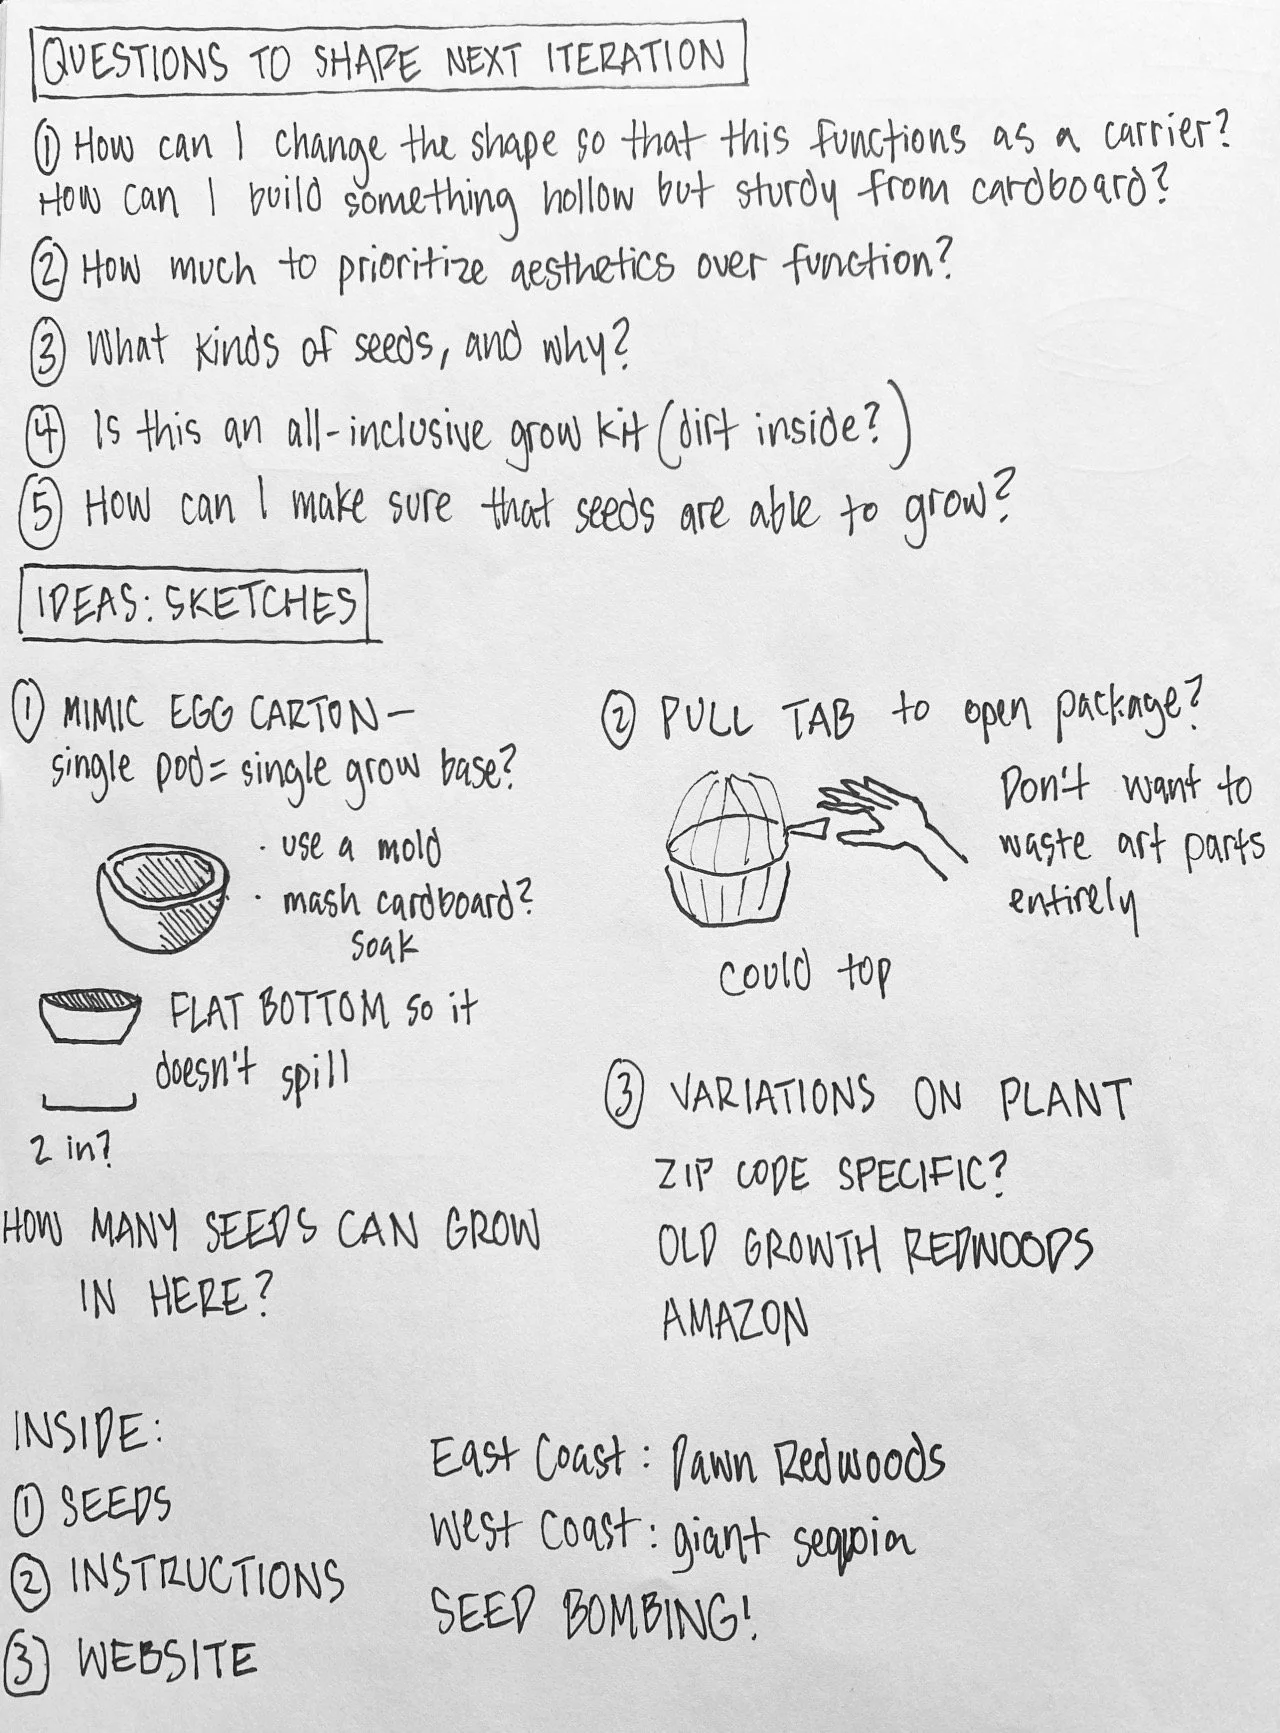 QUESTIONS TO SHAPE NEXT ITERATION
① How can I change the shape so that this functions as a carrier?
How can I build something hollow but sturdy from cardboard?
② How much to prioritize aesthetics over function?
③ What kinds of seeds, and why?
④ Is this an all-inclusive grow kit (dirt inside?)
⑤ How can I make sure that seeds are able to grow?
IDEAS: SKETCHES
① MIMIC EGG CARTON—
single pod = single grow base?
· use a mold
· mash cardboard?
soak
FLAT BOTTOM so it
doesn't spill
2 in?
HOW MANY SEEDS CAN GROW
IN HERE?
② PULL TAB to open package?
Don't want to
waste art parts
entirely
could top
③ VARIATIONS ON PLANT
ZIP CODE SPECIFIC?
OLD GROWTH REDWOODS
AMAZON
INSIDE:
① SEEDS
② INSTRUCTIONS
③ WEBSITE
East Coast: Dawn Redwoods
West Coast: giant sequoia
SEED BOMBING!